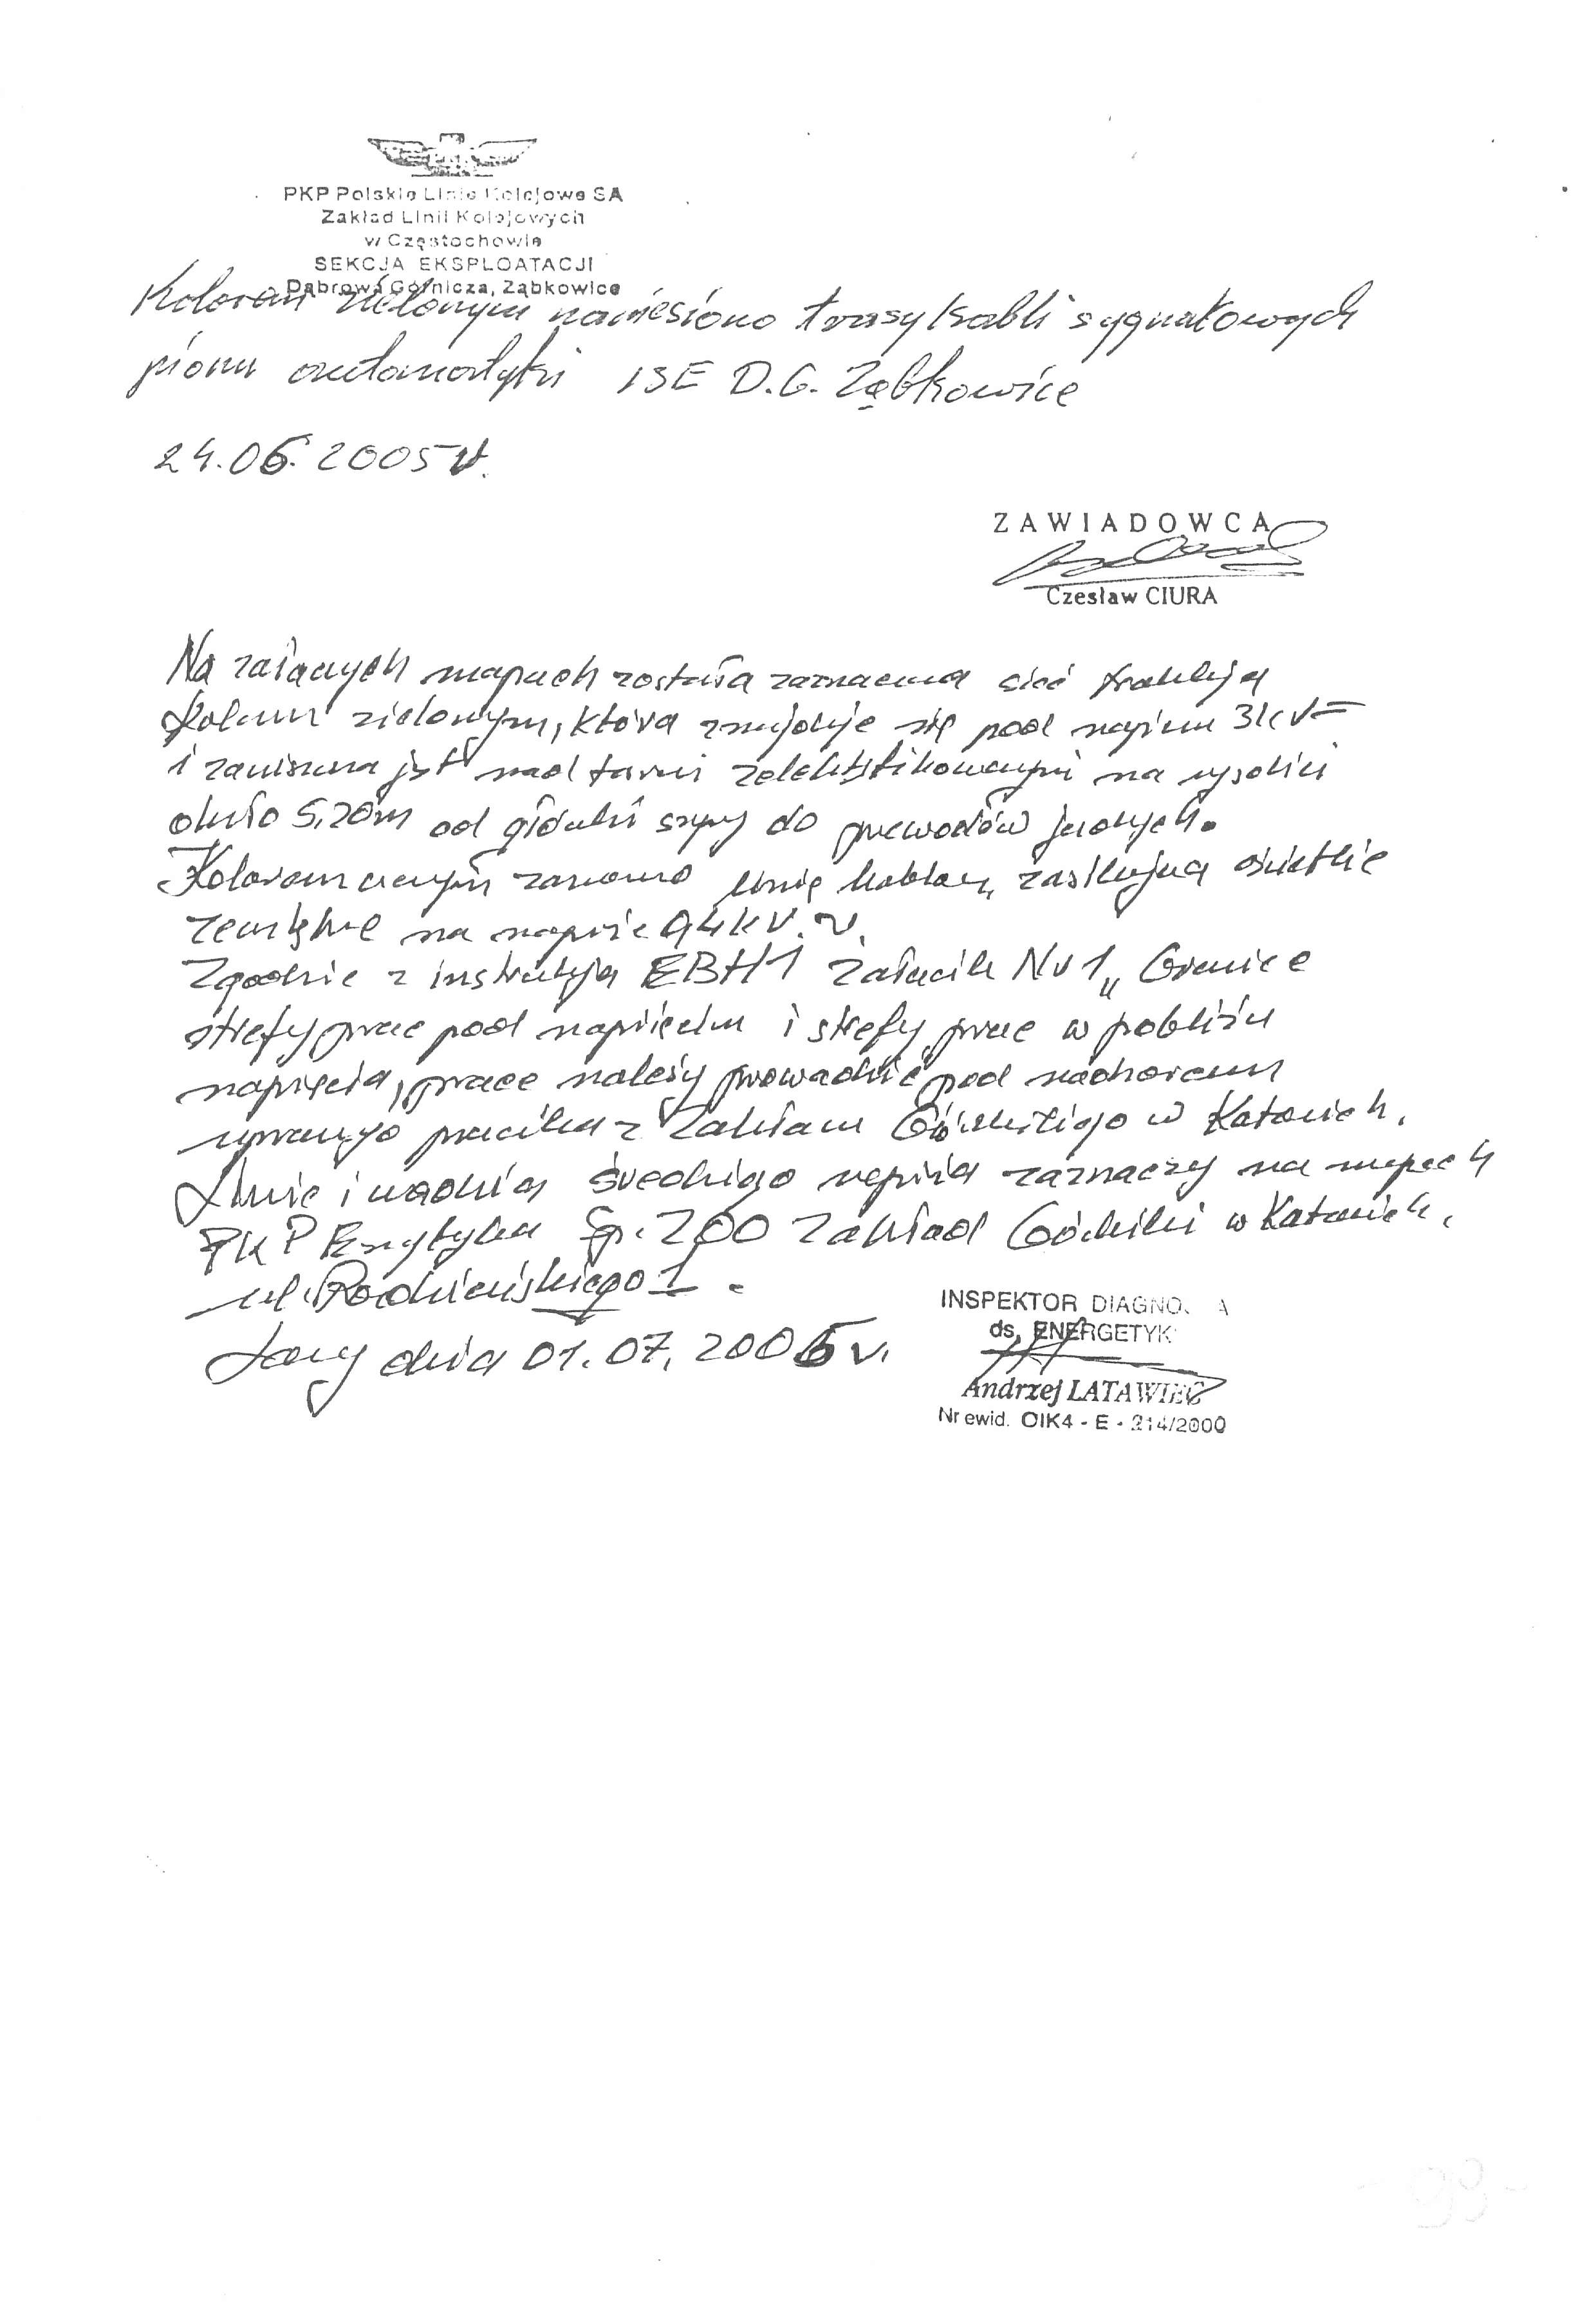 PKP Polskie Linie Kolejowe SA
Zakład Linii Kolejowych
w Częstochowie
SEKCJA EKSPLOATACJI
Dąbrowa Górnicza, Ząbkowice
Kolorem zielonym naniesiono trasy kabli sygnałowych
pionu automatyki ISE D.G. Ząbkowice
24.06.2005 r.
ZAWIADOWCA
Czesław CIURA
Na mapach została zaznaczona sieć
kolorem zielonym, która znajduje się pod napięciem 3kV=
i zawieszona jest nad torami zelektryfikowanymi na wysokości
około 5,20m od główki szyny do przewodów jezdnych.
Kolorem linię kablową zasilającą oświetlenie
zewnętrzne na napięcie 0,4kV ~.
Zgodnie z instrukcją EBH1 Załącznik Nr 1 „Granice
strefy prac pod napięciem i strefy prac w pobliżu
napięcia, prace należy prowadzić pod nadzorem
pracownika z Zakładu Górnośląskiego w Katowicach.
Linie i urządzenia średniego napięcia zaznaczy na mapach
PKP Energetyka Sp. ZOO Zakład Górnośląski w Katowicach,
ul. 1.
Łazy dnia 01.07.2005 r.
INSPEKTOR DIAGNO A
ds. ENERGETYK
Andrzej LATAWIEC
Nr ewid. OIK4 - E - 214/2000
- 99 -